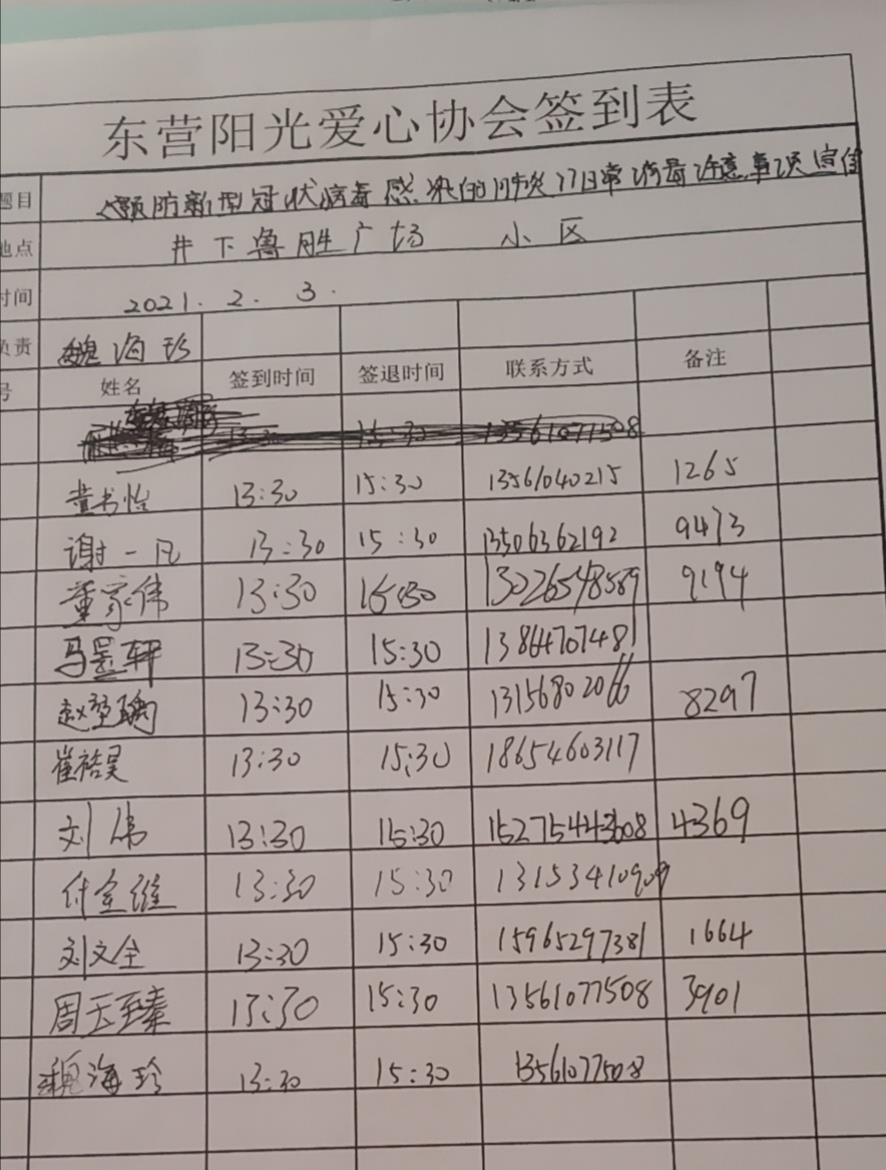 东营阳光爱心协会签到表
题目 预防新型冠状病毒感染的肺炎 日常消毒注意事项宣传
地点 井下鲁胜广场 小区
时间 2021. 2. 3.
负责 魏海珍
号 姓名 签到时间 签退时间 联系方式 备注
15:30 13561077508
董书怡 13:30 15:30 13561040215 1265
谢一凡 13:30 15:30 13506362192 9473
董家伟 13:30 15:30 13026548589 9194
马墨轩 13:30 15:30 13864707481
赵 13:30 15:30 13156802066 8297
崔裕昊 13:30 15:30 18654603117
刘伟 13:30 15:30 15275443608 4369
付 13:30 15:30 13153410909
刘文全 13:30 15:30 15965297381 1664
周 13:30 15:30 13561077508 3901
魏海珍 13:30 15:30 13561077508